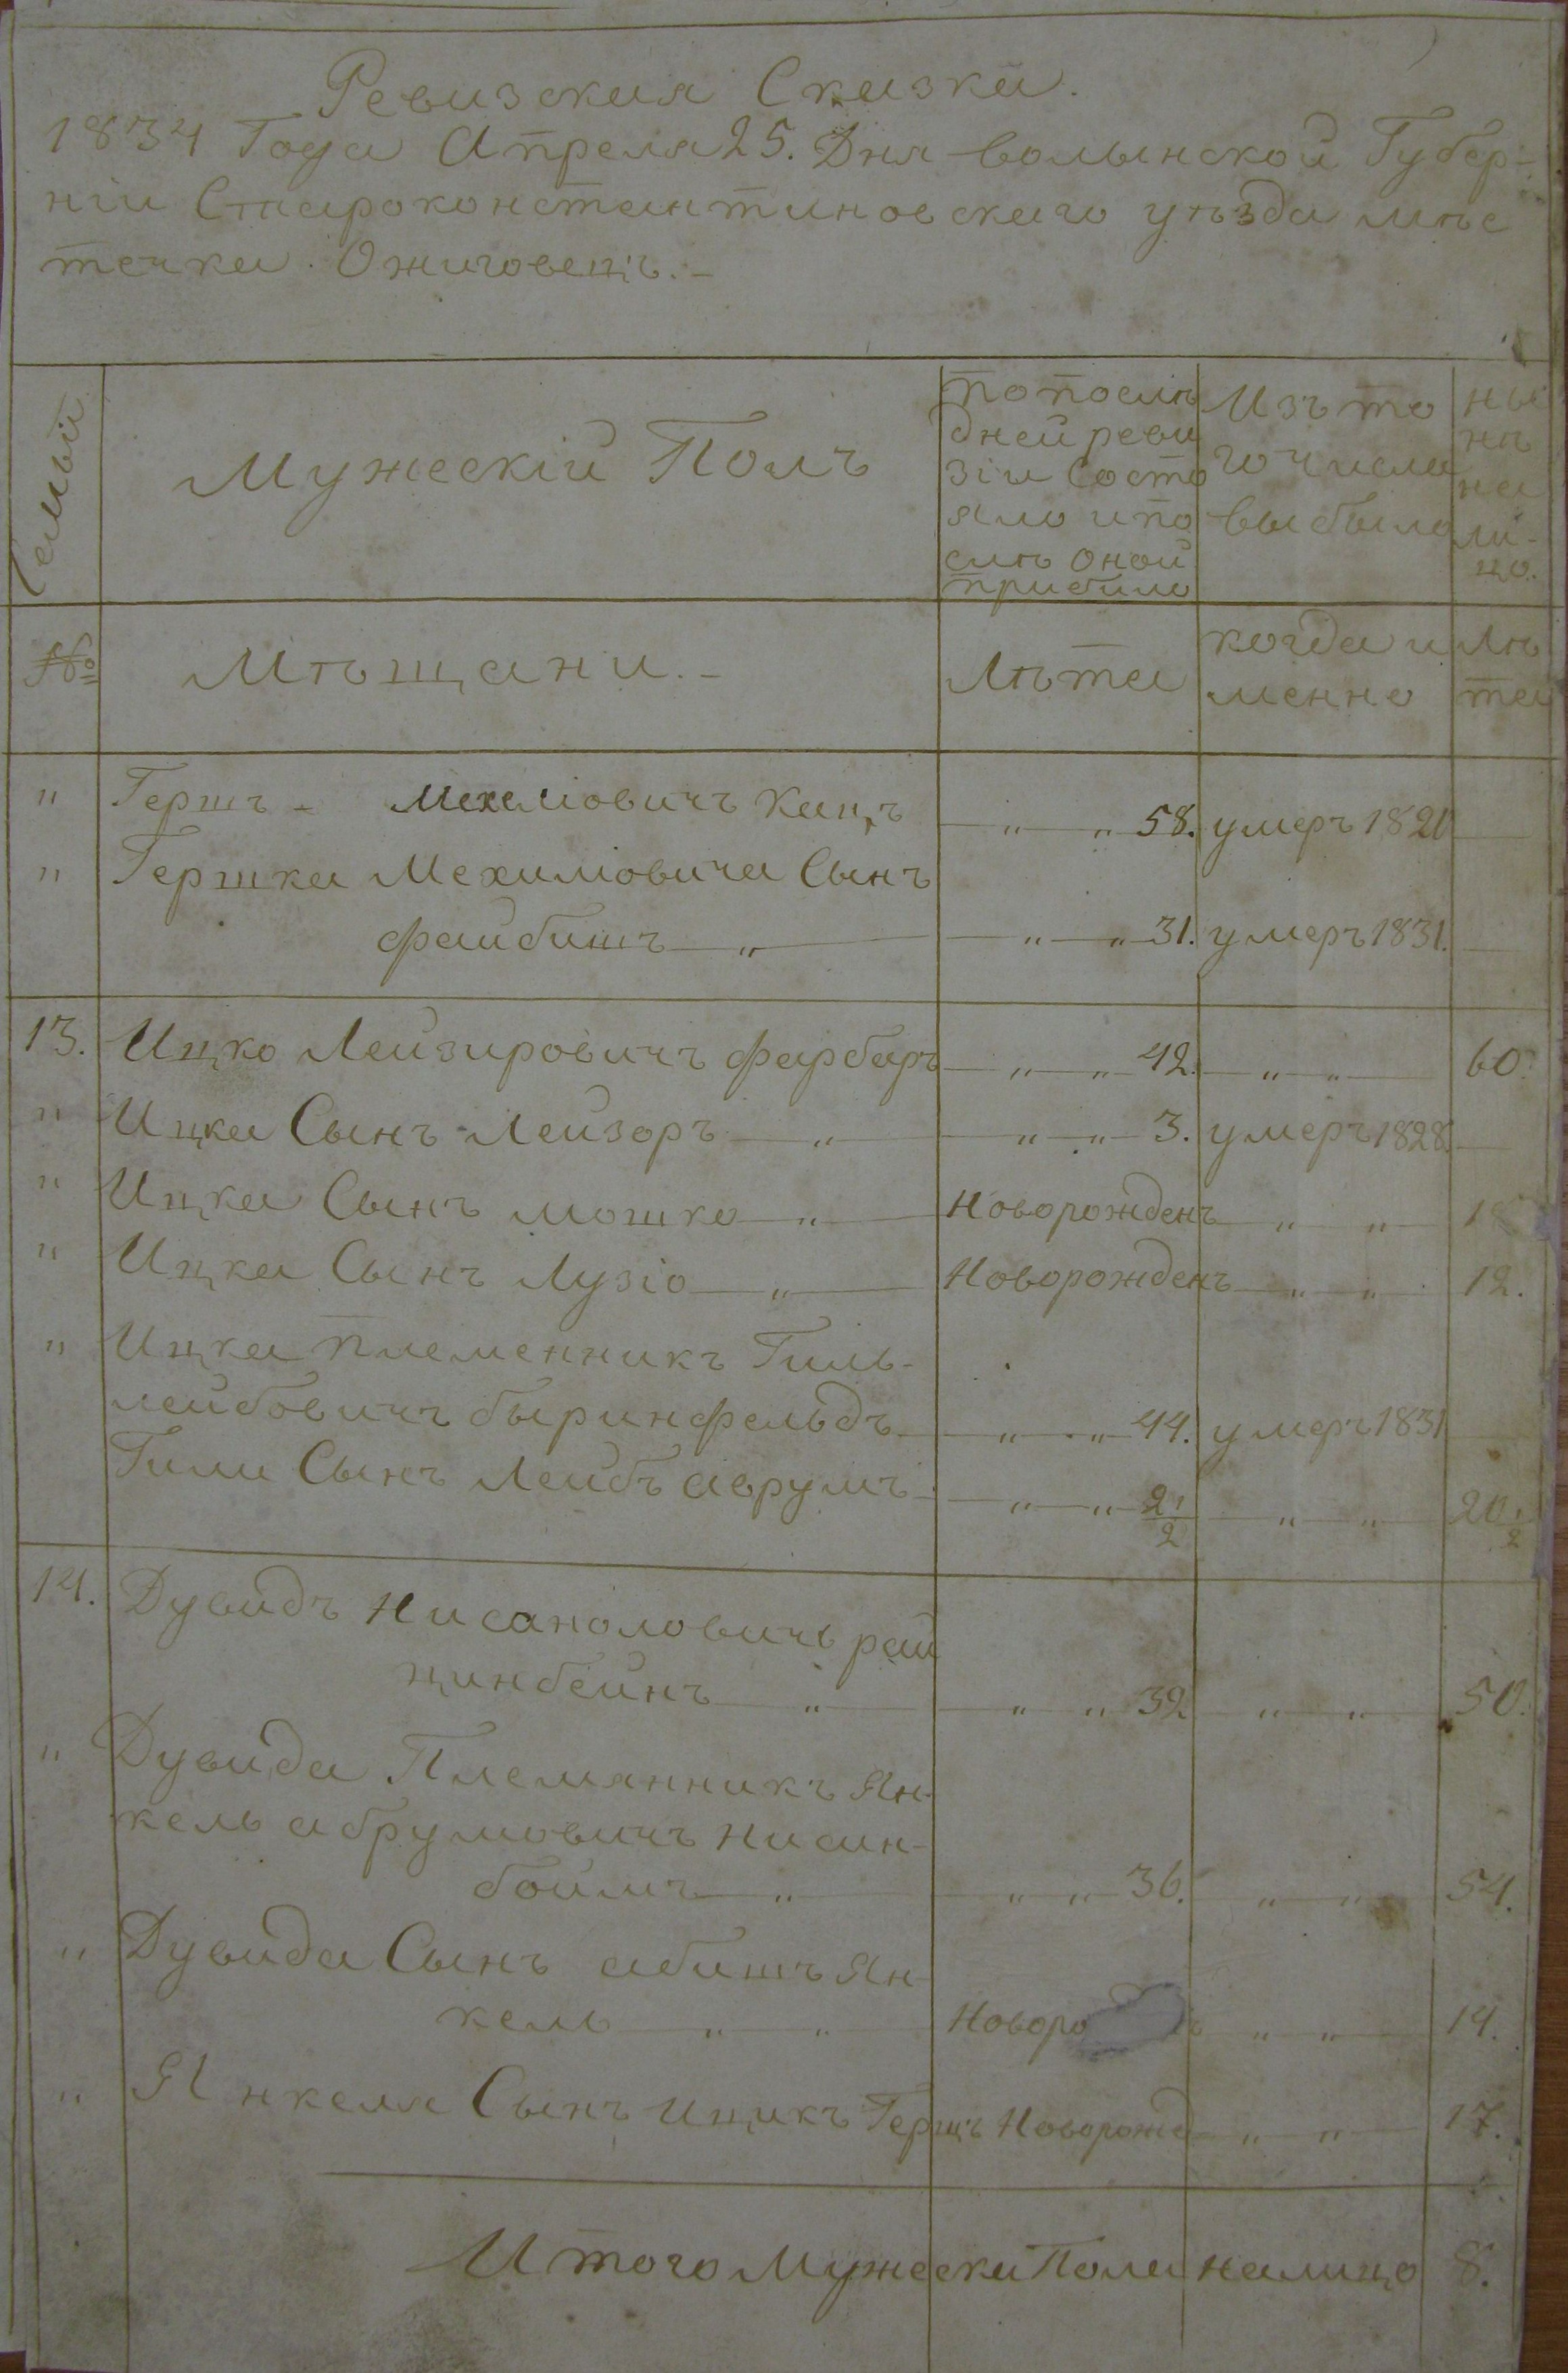 Ревизская Сказка.
1834 Года Апреля 25. Дня волынской Губер-
ніи Староконстантиновскаго уѣзда мѣс
течка Ожиговецъ.-
Семьи
Мужескій Полъ
по послѣ
дней реви
зіи Состо
яло и по
слѣ оной
прибило
Изъ то
го числа
выбыло
ны
нѣ
на
ли-
цо.
№
Мѣщани.-
Лѣта
когда и
менно
Лѣ
та
" Гершъ - Мехелiовичъ Кацъ " " 58. умеръ 1821
" Гершка Мехилiовича Сынъ
файбишъ " " " 31. умеръ 1831.
13. Ицко Лейзировичъ фарбаръ " " 42. " " 60.
" Ицка Сынъ Лейзоръ " " " 3. умеръ 1828.
" Ицка Сынъ мошко " Новорожденъ " " 18
" Ицка Сынъ Лузіо " Новорожденъ " " 12.
" Ицка племенникъ Гиль-
лейбовичъ быринфельдъ " " 44. умеръ 1831
Гили Сынъ Лейбъ аврумъ " " 2 1/2 " " 20 1/2
14. Дувидъ Нисаноловичь рай
цинбейнъ " " " 32. " " 50.
" Дувида Племянникъ Ян-
кель абрумовичъ нисин-
боймъ " " " 36. " " 54.
" Дувида Сынъ абишъ Ян-
кель " " Новоро ъ " " 14.
" Янкеля Сынъ ицикъ Гершъ Новорожд " " 17.
Итого Мужеска Пола налицо 8.